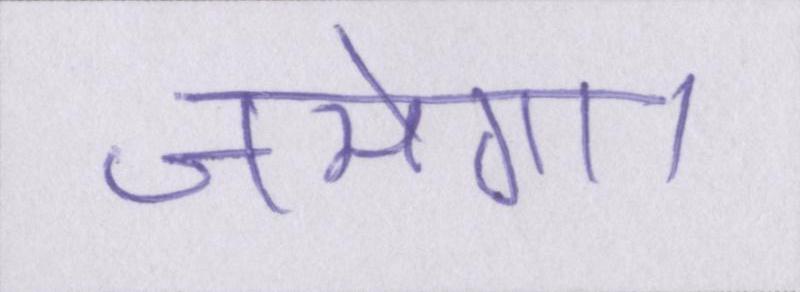 जमेगा।